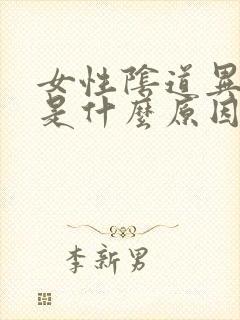 女性陰道異
是什麼原因
李新男